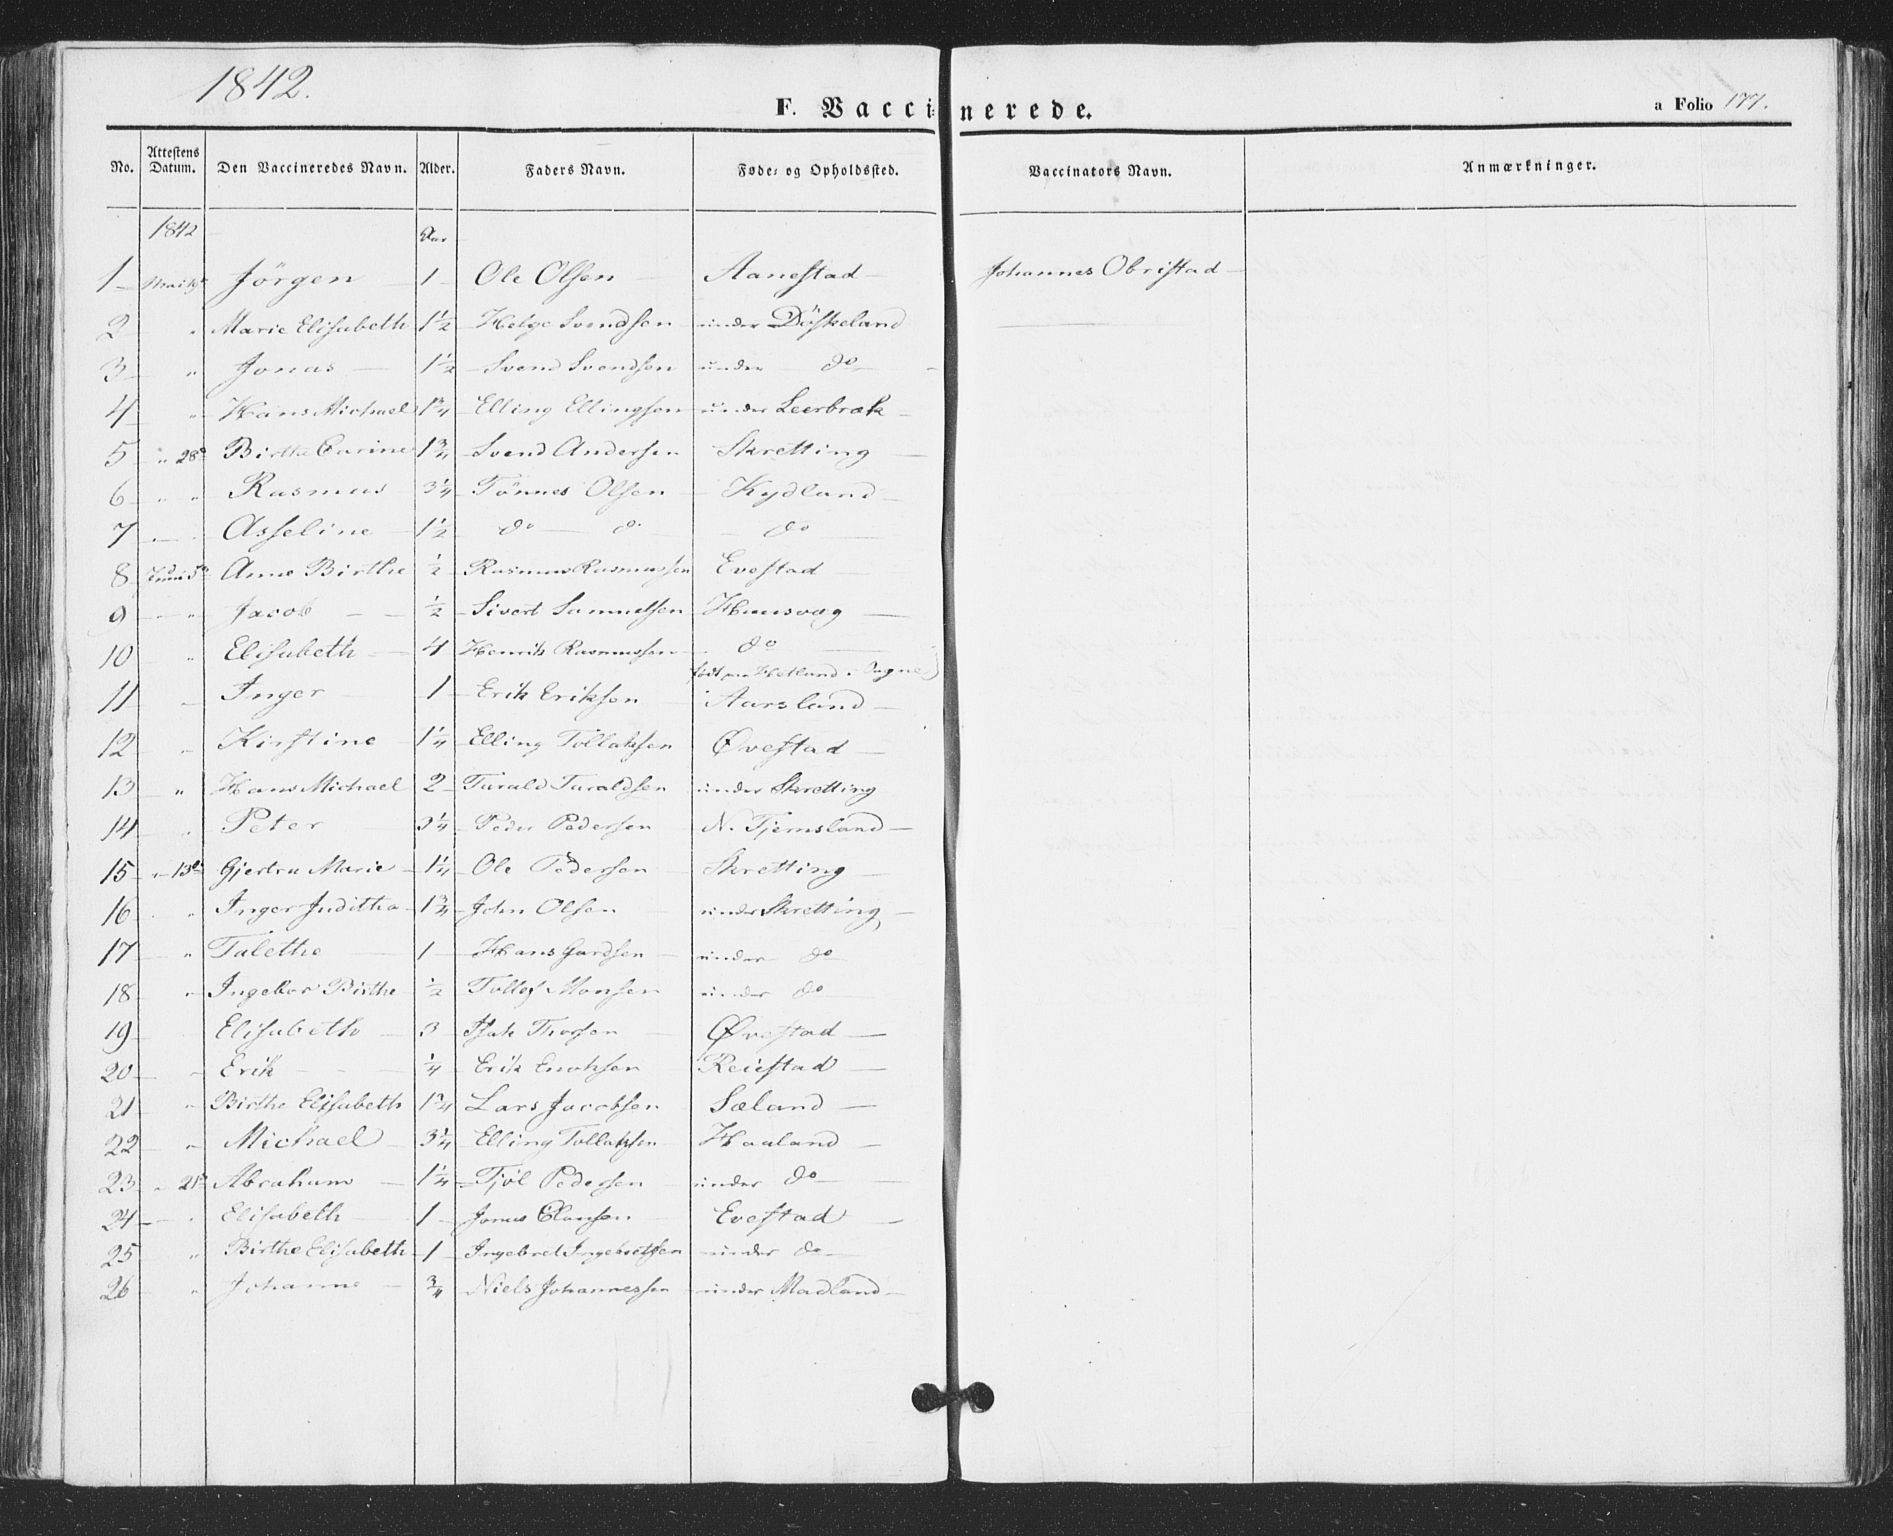 1842.
F. Vaccinerede.
a Folio 177.
No. Attestens Datum. Den Vaccineredes Navn. Alder. Faders Navn. Føde- og Opholdssted. Vaccinators Navn. Anmærkninger.
1842 Aar
1 Mai 19de Jörgen 1 Ole Olsen Aanestad Johannes Obristad
2 " Marie Elisabeth 1½ Helge Svendsen under Döskeland
3 " Jonas 1½ Svend Svendsen under do
4 " Hans Michael 1¾ Elling Ellingsen under Leerbræk
5 " 28de Birthe Carine 1¾ Svend Andersen Skretting
6 " " Rasmus 3¼ Tönnes Olsen Kydland
7 " Asseline 1½ do do do
8 Juni 5te Anne Birthe ½ Rasmus Rasmussen Evestad
9 " Jacob ½ Sivert Samuelsen Haasvog
10 " Elisabeth 4 Henrik Rasmussen do
født paa Hetland Sogne)
11 Inger 1 Erik Eriksen Aarsland
12 " Kirstine 1¼ Elling Tollaksen Øvestad
13 " Hans Michael 2 Tarald Taraldsen under Skretting
14 " Peter 3¼ Peder Pedersen N. Tjemsland
15 " 13de Gjertru Marie 1¼ Ole Pedersen Skretting
16 " Inger Juditha 1¾ John Olsen under Skretting
17 " Talethe 1 Hans Gardsen under do
18 " Ingebor Birthe ½ Tollef Monsen under do
19 Elisabeth 3 Isak Thorsen Øvestad
20 " Erik ¼ Erik Enoksen Reiestad
21 " Birthe Elisabeth 1¾ Lars Jacobsen Sæland
22 " Michael 3¼ Elling Tollaksen Haaland
23 " 21de Abraham 1¼ Tjöl Pedersen under do
24 " Elisabeth 1 Jonas Olansen Evestad
25 " Birthe Elisabeth 1 Ingebret Ingebretsen under do
26 " Johanne ¾ Niels Johannessen under Madland